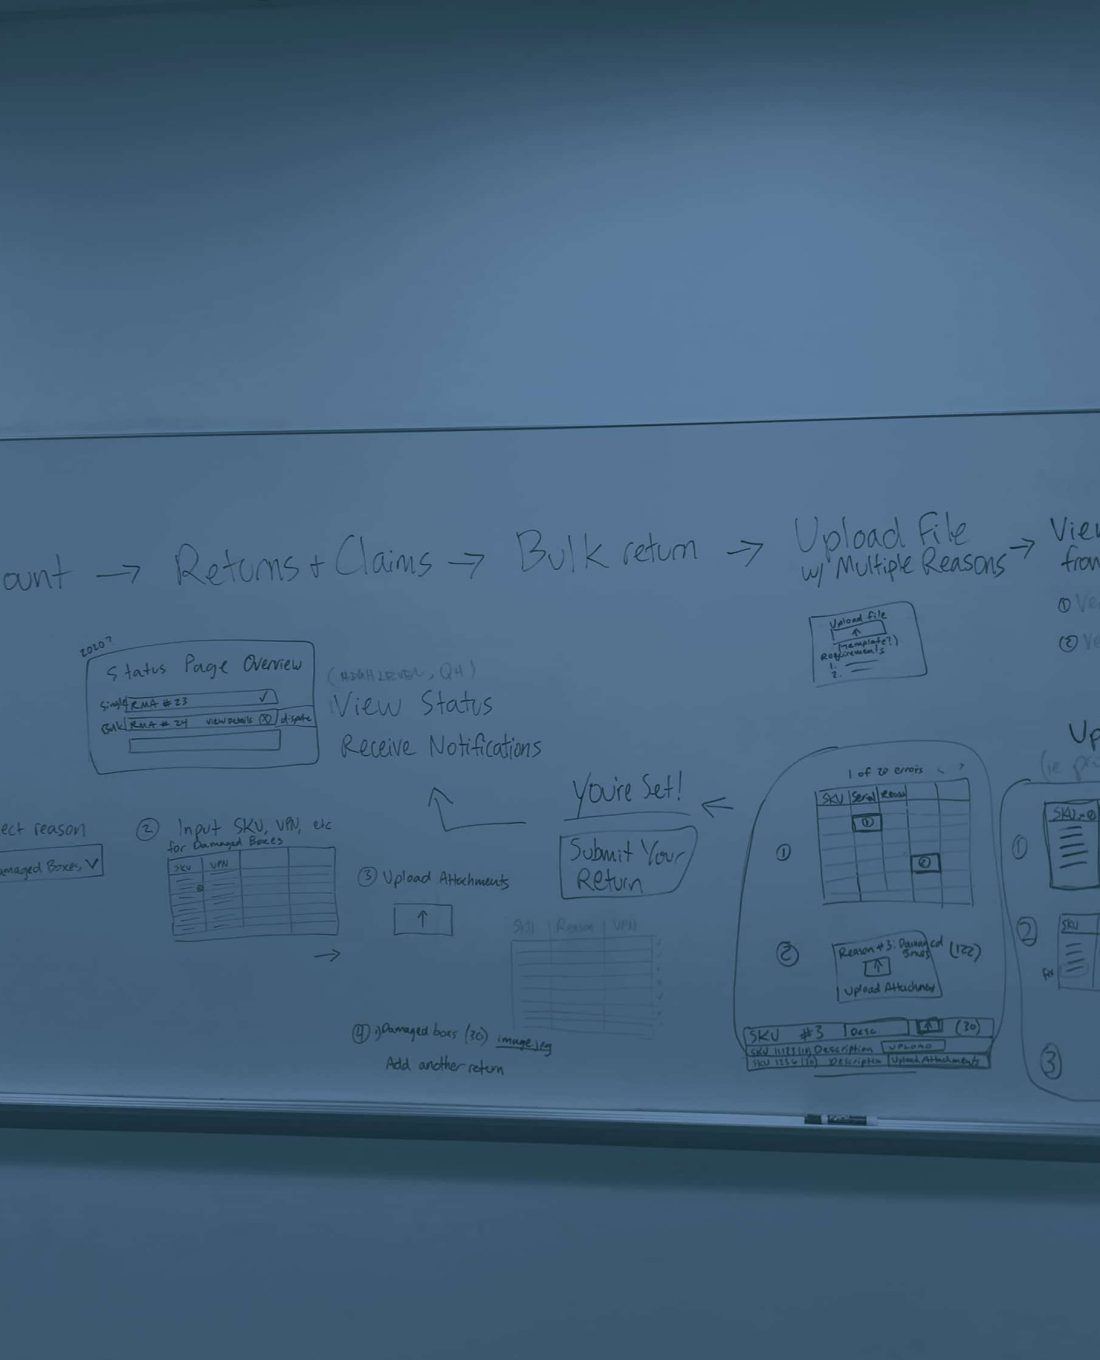 ount → Returns + Claims → Bulk return → Upload File
w/ Multiple Reasons →
View
from
①
②
Upload File
↑
(template?)
Requirements
1.
2.
2020?
Status Page Overview
Single RMA # 23 ✓
Bulk RMA # 24 View Details ⓧ dispute
View Status
Receive Notifications
You're Set! ←
Submit Your
Return
ect reason
amaged Boxes ✓
② Input SKU, VPN, etc
for Damaged Boxes
SKU VPN
→
③ Upload Attachments
↑
SKU Reason VPN
④ 1) Damaged boxes (30) image.jpg
Add another return
1 of 20 errors < >
SKU Serial Reason
①
①
②
② Reason #3: Damaged
boxes (122)
↑
Upload Attachment
SKU #3 Desc ↑ (30)
Description UPLOAD
SKU 1234 (30) Description Upload Attachments
Up
①
SKU
②
SKU
for
③